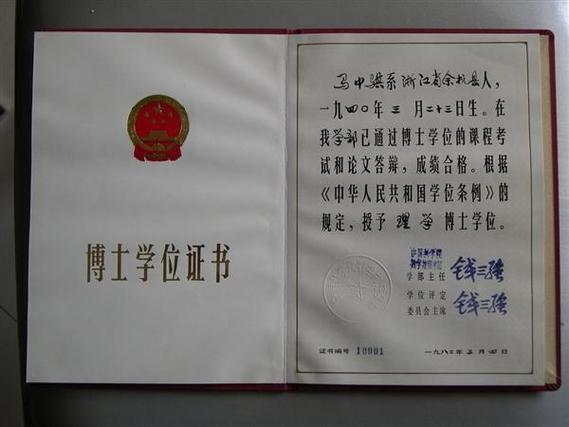 博士学位证书
马中骐系浙江省余杭县人，
一九四〇年三月二十三日生。在
我学部已通过博士学位的课程考
试和论文答辩，成绩合格。根据
《中华人民共和国学位条例》的
规定，授予理学博士学位。
中国科学院
数学物理学部
学部主任 钱三强
学位评定
委员会主席 钱三强
证书编号 10001
一九八二年三月四日